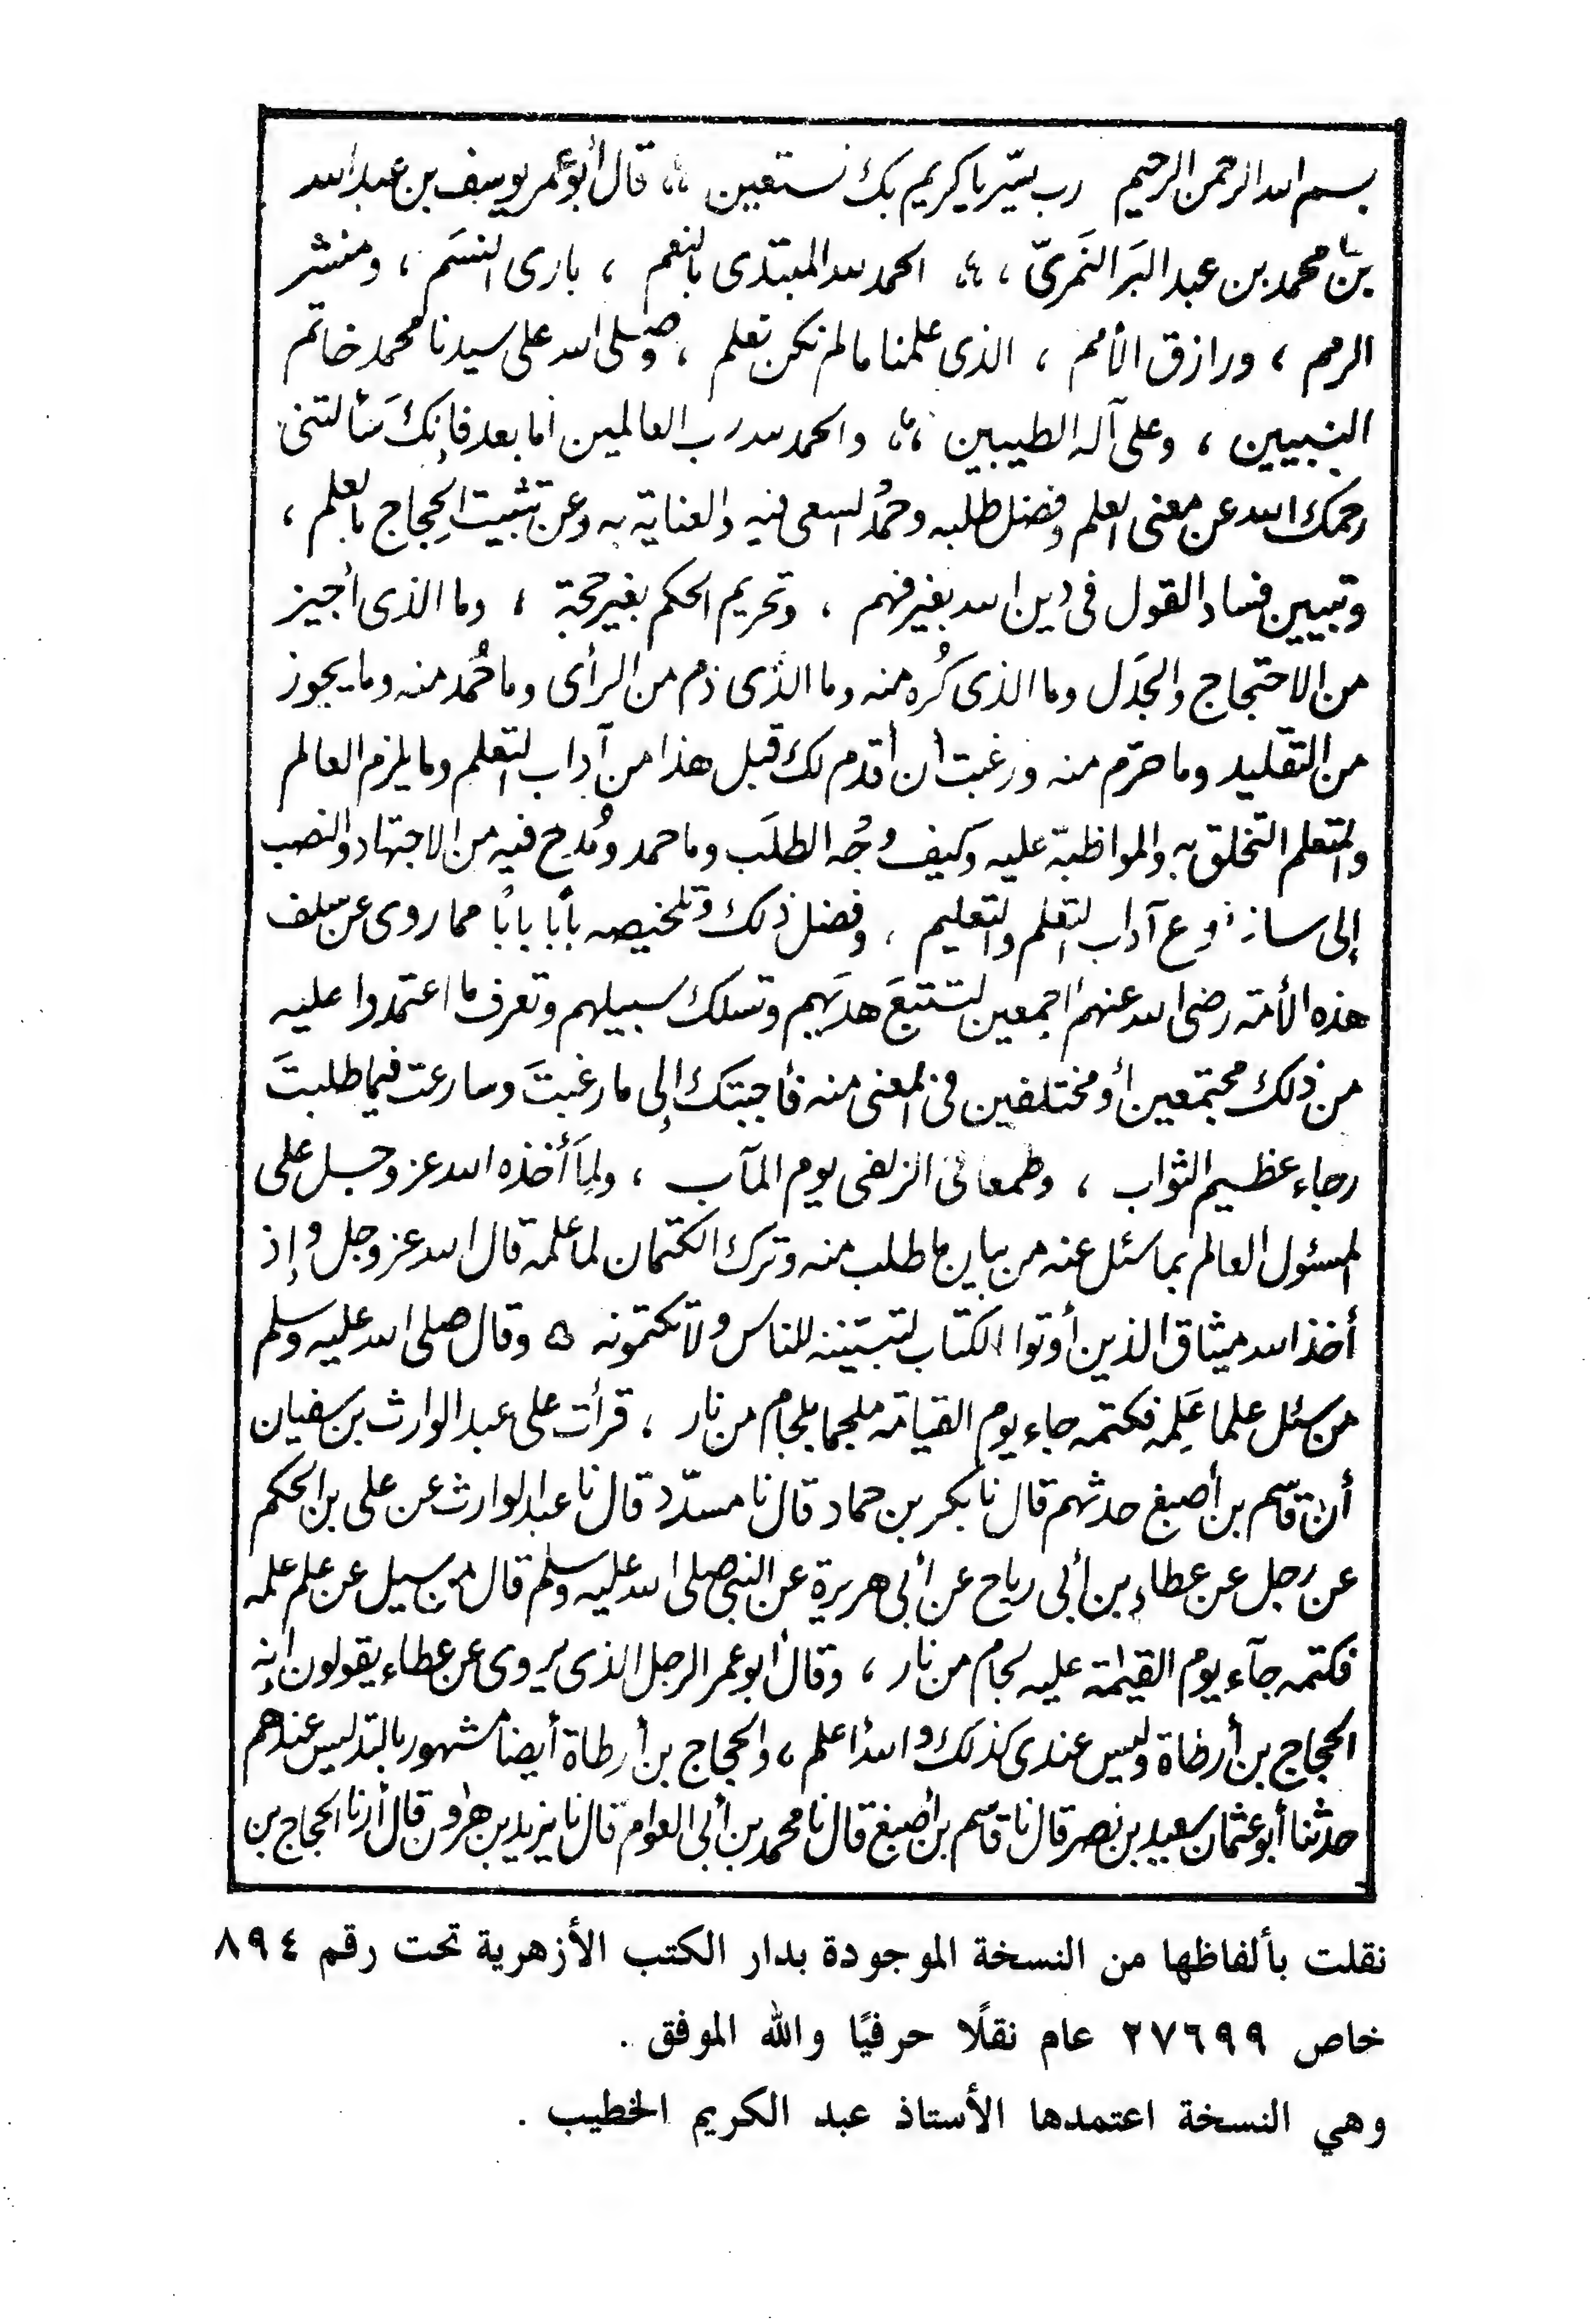 بسم الله الرحمن الرحيم رب يسّر يا كريم بك نستعين ،، قال أبو عمر يوسف بن عبد الله
بن محمد بن عبد البَر النَمَرىّ ،، الحمد لله المبتدى بالنعم ، بارى النسَم ، ومنشر
الرمم ، ورازق الأمم ، الذى علمنا ما لم نكن نعلم ، وصلى الله على سيدنا محمد خاتم
النبيين ، وعلى آله الطيبين ،، والحمد لله رب العالمين أما بعد فإنكَ سَألتنى
رحمك الله عن معنى العلم وفضل طلبه وحمُد السعى فيه والعناية به وعن تثبيت الحِجاج بالعلم ،
وتبيين فساد القول فى دين الله بغير فهم ، وتحريم الحكم بغير حجة ، وما الذى أُجيز
من الاحتجاج والجَدَل وما الذى كُره منه وما الذى ذم من الرأى وما حُمد منه وما يجوز
من التقليد وما حرّم منه ورغبت أن أقدم لك قبل هذا من آداب التعلم وما يلزم العالم
والمتعلم التخلق به والمواظبة عليه وكيف وُجُه الطلَب وما حمد ومُدِح فيه من الاجتهاد والنصب
إلى سائر أنواع آداب التعلم والتعليم ، وفضل ذلك وتلخيصه بابًا بابًا مما روى عن سلف
هذه الأمة رضى الله عنهم أجمعين لتتبعَ هديَهم وتسلك سبيلهم وتعرف ما اعتمدوا عليه
من ذلك مجتمعين أو مختلفين فى المعنى منه فأجبتك إلى ما رغبتَ وسارعت فيما طلبتَ
رجاء عظيم الثواب ، وطمعا فى الزلفى يوم المآب ، ولِمَا أخذه الله عز وجل على
المسئول العالم بما سئل عنه من بيان ما طلب منه وترك الكتمان لما علمه قال الله عز وجل وإذ
أخذ الله ميثاق الذين أوتوا الكتاب لتبيننه للناس ولا تكتمونه ه وقال صلى الله عليه وسلم
من سئل علما عَلِمه فكتمه جاء يوم القيامة ملجما بلجام من نار ، قرأت على عبد الوارث بن سفيان
أن قاسم بن أصبغ حدثهم قال نا بكر بن حماد قال نا مسدّد قال نا عبد الوارث عن على بن الحكم
عن رجل عن عطاء بن أبى رباح عن أبى هريرة عن النبى صلى الله عليه وسلم قال من سيل عن علم علمه
فكتمه جآء يوم القيٰمة عليه لجام من نار ، وقال أبو عمر الرجل الذى يروى عن عطاء يقولون إنه
الحجاج بن أرطاة وليس عندى كذلك والله أعلم ، والحجاج بن أرطاة أيضا مشهور بالتدليس عندهم
حدثنا أبو عثمان سعيد بن نصر قال نا قاسم بن أصبغ قال نا محمد بن أبى العوام قال نا يزيد بن هٰرون قال أرنا الحجاج بن
نقلت بألفاظها من النسخة الموجودة بدار الكتب الأزهرية تحت رقم ٨٩٤
خاص ٢٧٦٩٩ عام نقلًا حرفيًا والله الموفق .
وهي النسخة اعتمدها الأستاذ عبد الكريم الخطيب .